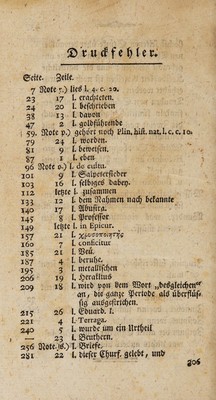 Druckfehler.
Seite. Zeile.
7 Note r.) lies l. 4. c. 20.
23 17 l. erachteten.
24 20 l. beschrieben
38 13 l. davon
47 2 l. goldführende
59. Note p.) gehört noch Plin. hist. nat. l. c. c. 10.
79 24 l. worden.
81 9 l. beweisen.
87 1 l. eben
96 Note o.) l. de cultu.
101 9 l. Salpetersieder
103 16 l. selbiges dabey.
112 letzte l. zusammen
133 12 l. dem Nahmen nach bekannte
140 17 l. Abusira.
145 8 l. Professor
149 letzte l. in Epicur.
157 21 l. χρυσοποιητης
160 7 l. conficitur
185 21 l. Veü.
187 4 l. beruhe.
195 3 l. metallischen
206 19 l. Heraklius
209 18 l. wird von dem Wort „desgleichen“
an, die ganze Periode als überflüs-
sig ausgestrichen.
215 26 l. Eduard. I.
221 4 l. Terraga.
240 5 l. wurde um ein Urtheil
— 23 l. Beuthern.
256 Note l. Briefe.
281 22 l. dieser Churf. gelebt, und
306